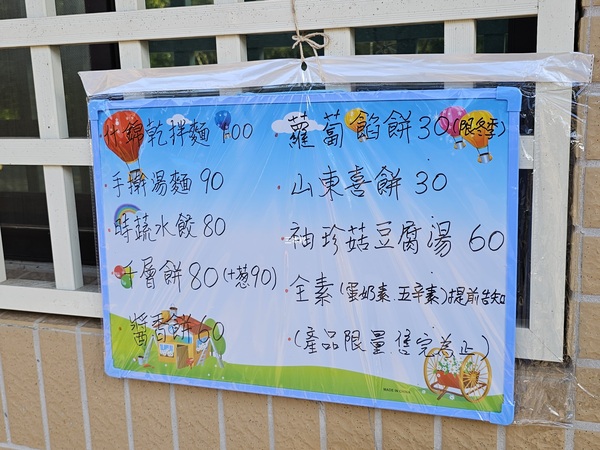 什錦乾拌麵 100
手擀湯麵 90
時蔬水餃 80
千層餅 80 (+葱90)
醬香餅 60
蘿蔔餡餅 30 (限冬季)
山東喜餅 30
袖珍菇豆腐湯 60
全素 (蛋奶素.五辛素) 提前告知
(產品限量 售完為止)
MADE IN CHINA